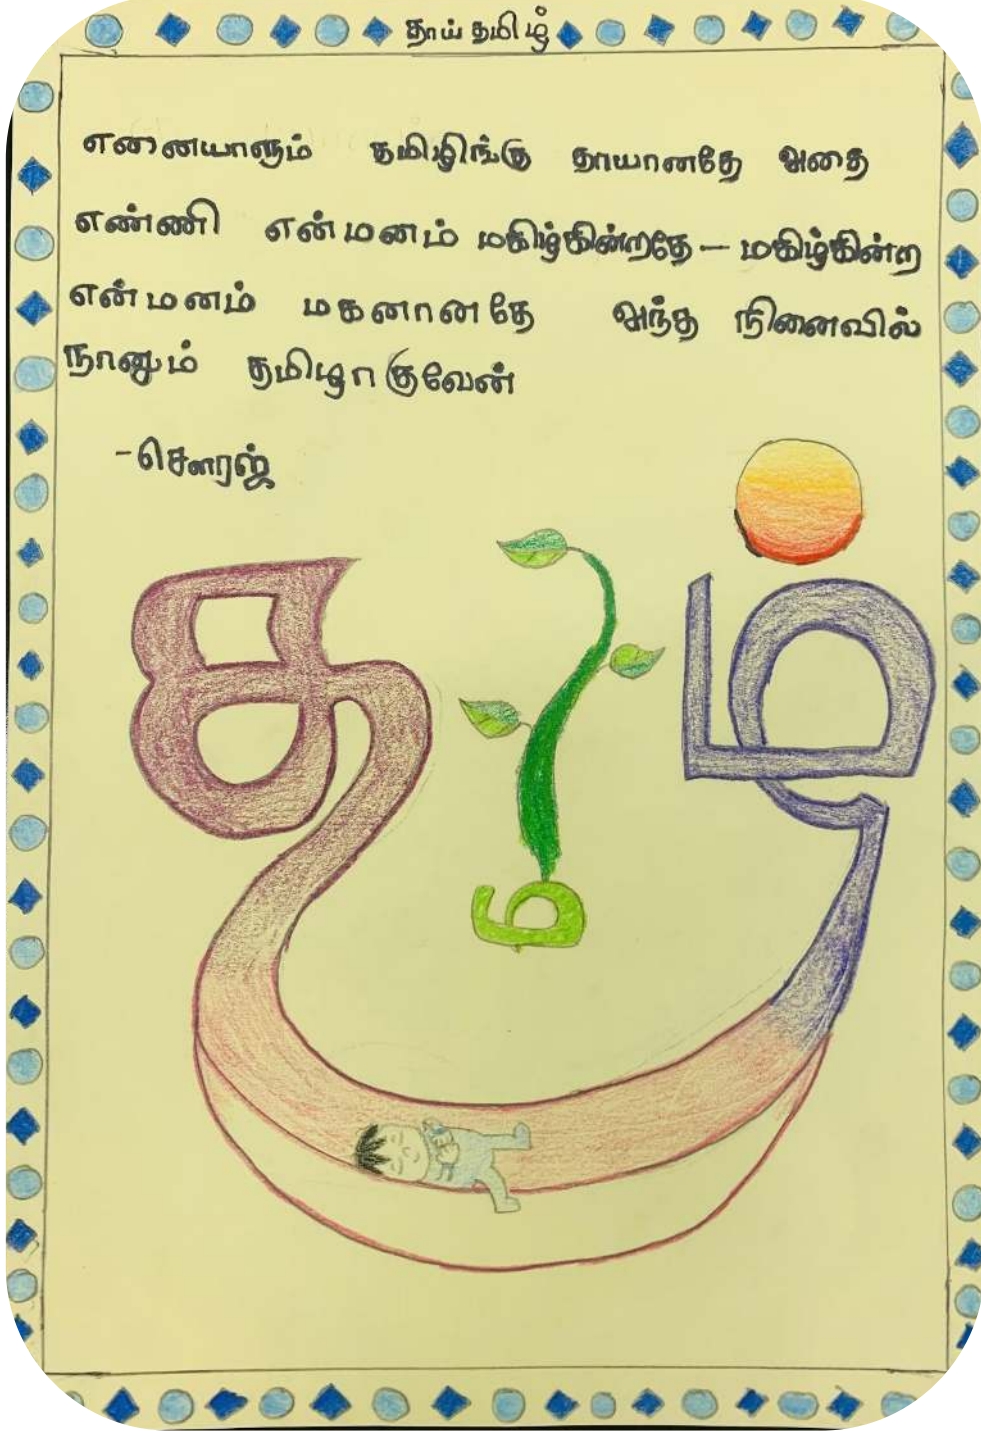 தாய் தமிழ்
எனையாளும் தமிழிங்கு தாயானதே அதை
எண்ணி என் மனம் மகிழ்கின்றதே – மகிழ்கின்ற
என் மனம் மகனானதே அந்த நினைவில்
நானும் தமிழாகுவேன்
-சௌரஜ்
தமிழ்